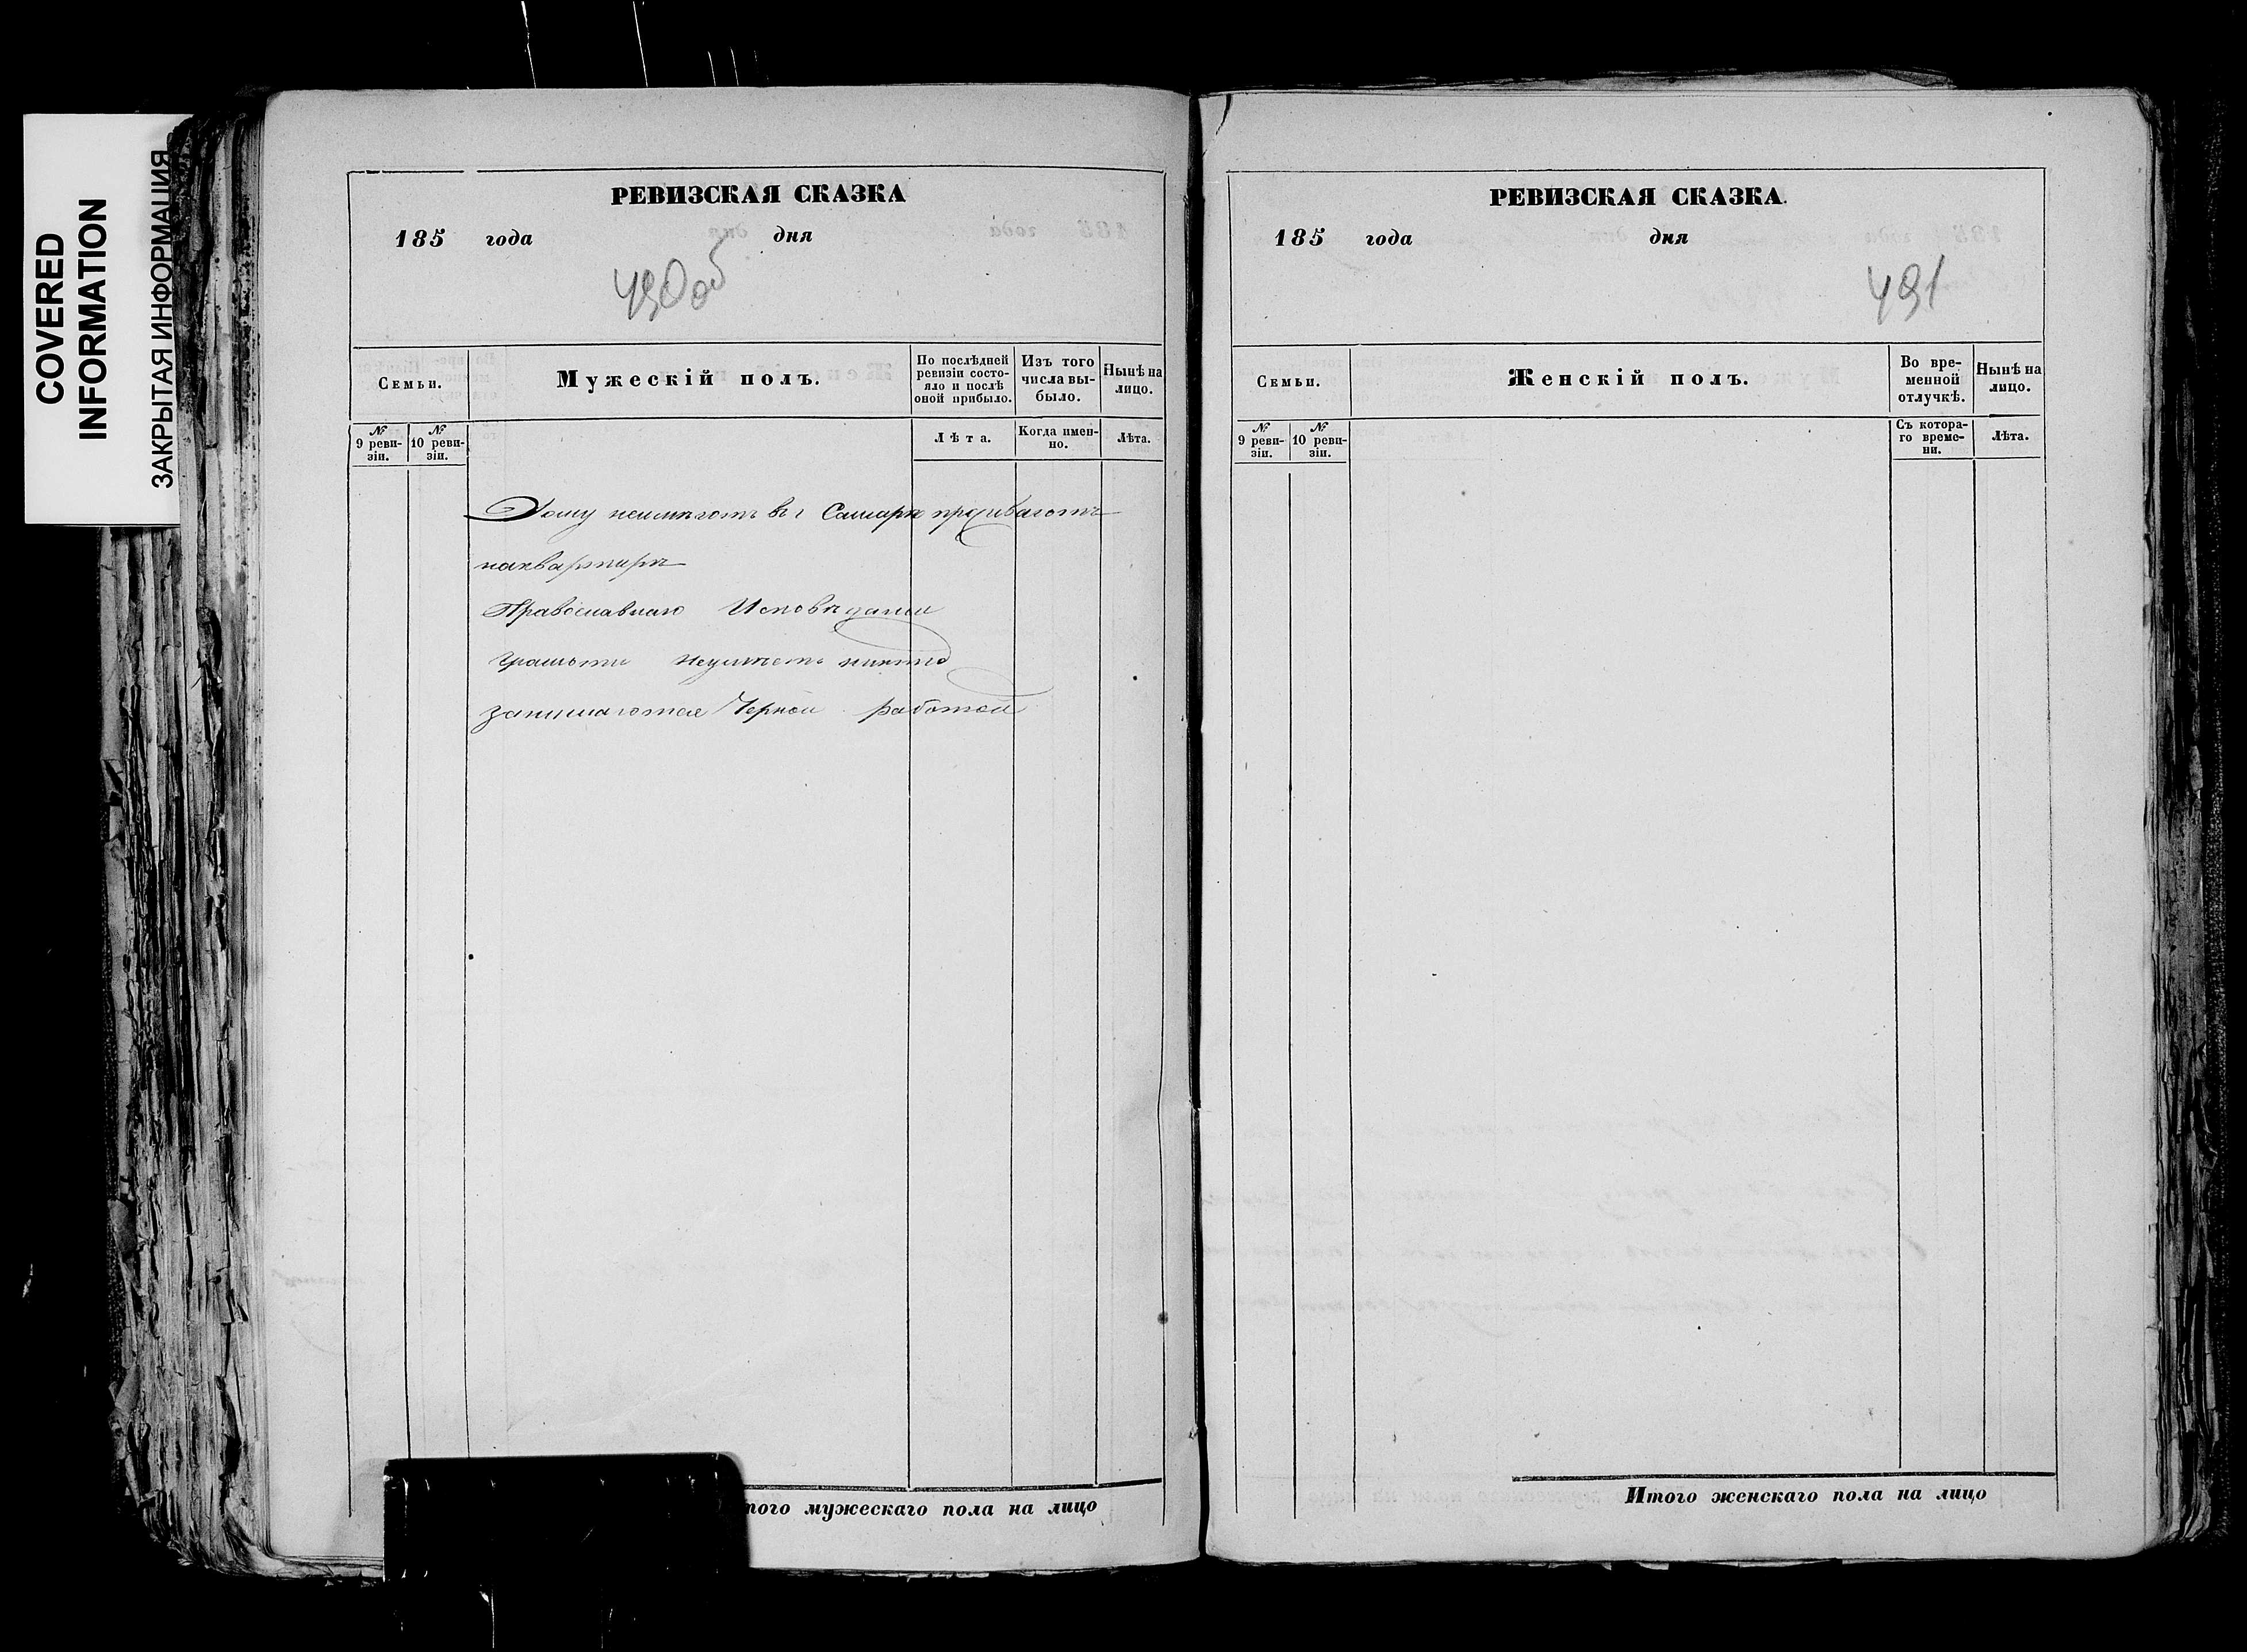 COVERED
INFORMATION
ЗАКРЫТАЯ ИНФОРМАЦИЯ
РЕВИЗСКАЯ СКАЗКА
185 года дня
490об
Семьи.
Мужескій полъ.
По послѣдней ревизіи состояло и послѣ оной прибыло.
Изъ того числа выбыло.
Нынѣ на лицо.
№ 9 ревизіи.
№ 10 ревизіи.
Лѣта.
Когда именно.
Лѣта.
Дому неимѣютъ въ г Самарѣ проживаютъ
наквартирѣ
Православнаго Исповѣдании
Грамоти неумѣетъ никто
занимаются Черной работой
того мужескаго пола на лицо
РЕВИЗСКАЯ СКАЗКА.
185 года дня
491
Семьи.
Женскій полъ.
Во временной отлучкѣ.
Нынѣ на лицо.
№ 9 ревизіи.
№ 10 ревизіи.
Съ котораго времени.
Лѣта.
Итого женскаго пола на лицо